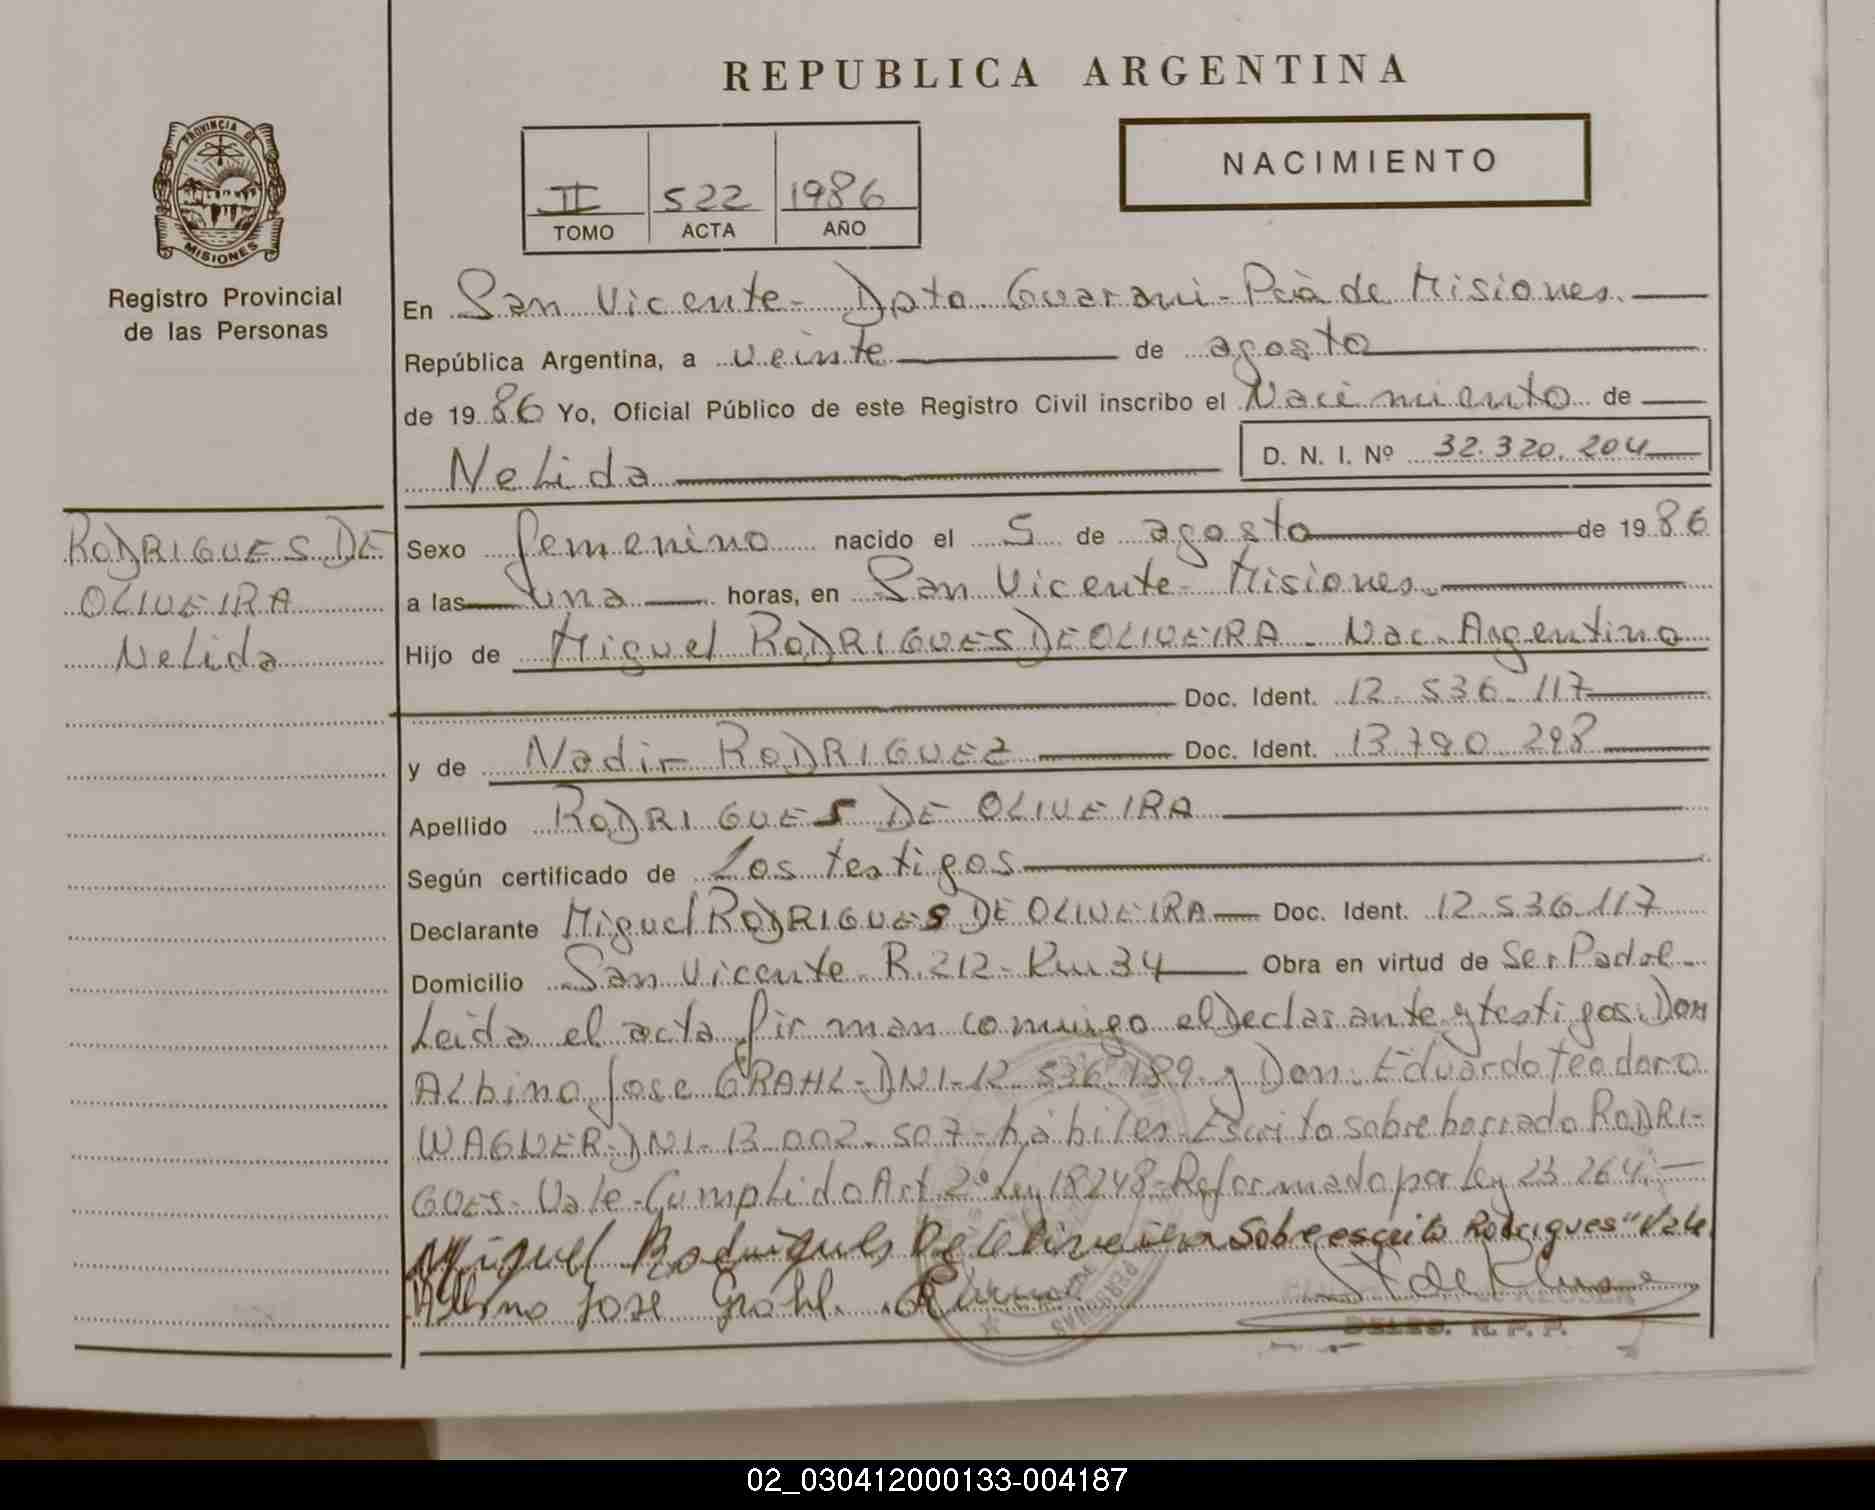 REPUBLICA ARGENTINA
PROVINCIA DE
MISIONES
Registro Provincial
de las Personas
II 522 1986
TOMO ACTA AÑO
NACIMIENTO
En San Vicente - Dpto Guarani - Pcia de Misiones.
República Argentina, a veinte de agosto
de 1986 Yo, Oficial Público de este Registro Civil inscribo el Nacimiento de
Nelida D. N. I. Nº 32.320.204
RODRIGUES DE
OLIVEIRA
Nelida
Sexo femenino nacido el 5 de agosto de 1986
a las una horas, en San Vicente - Misiones.
Hijo de Miguel RODRIGUES DE OLIVEIRA - Nac. Argentino
Doc. Ident. 12.536.117
y de Nadir RODRIGUEZ Doc. Ident. 13.790.298
Apellido RODRIGUES DE OLIVEIRA
Según certificado de Los testigos
Declarante Miguel RODRIGUES DE OLIVEIRA Doc. Ident. 12.536.117
Domicilio San Vicente - R. 212 - Km 34 Obra en virtud de Ser Padre -
Leida el acta firman conmigo el Declarante y testigos: Don
Albino Jose GRAHL - DNI - 12.536.189 y Don: Eduardo Teodoro
WAGNER - DNI - 13.002.507 - hábiles - Escrito sobre borrado RODRI-
GUES - Vale - Cumplido Art 2º Ley 18248 - Reformado por Ley 23.264. -
Miguel Rodrigues De Oliveira Sobreescrito Rodrigues" Vale.
Albino Jose Grahl.
PERSONAS
DELEG. R. P. P.
02_030412000133-004187